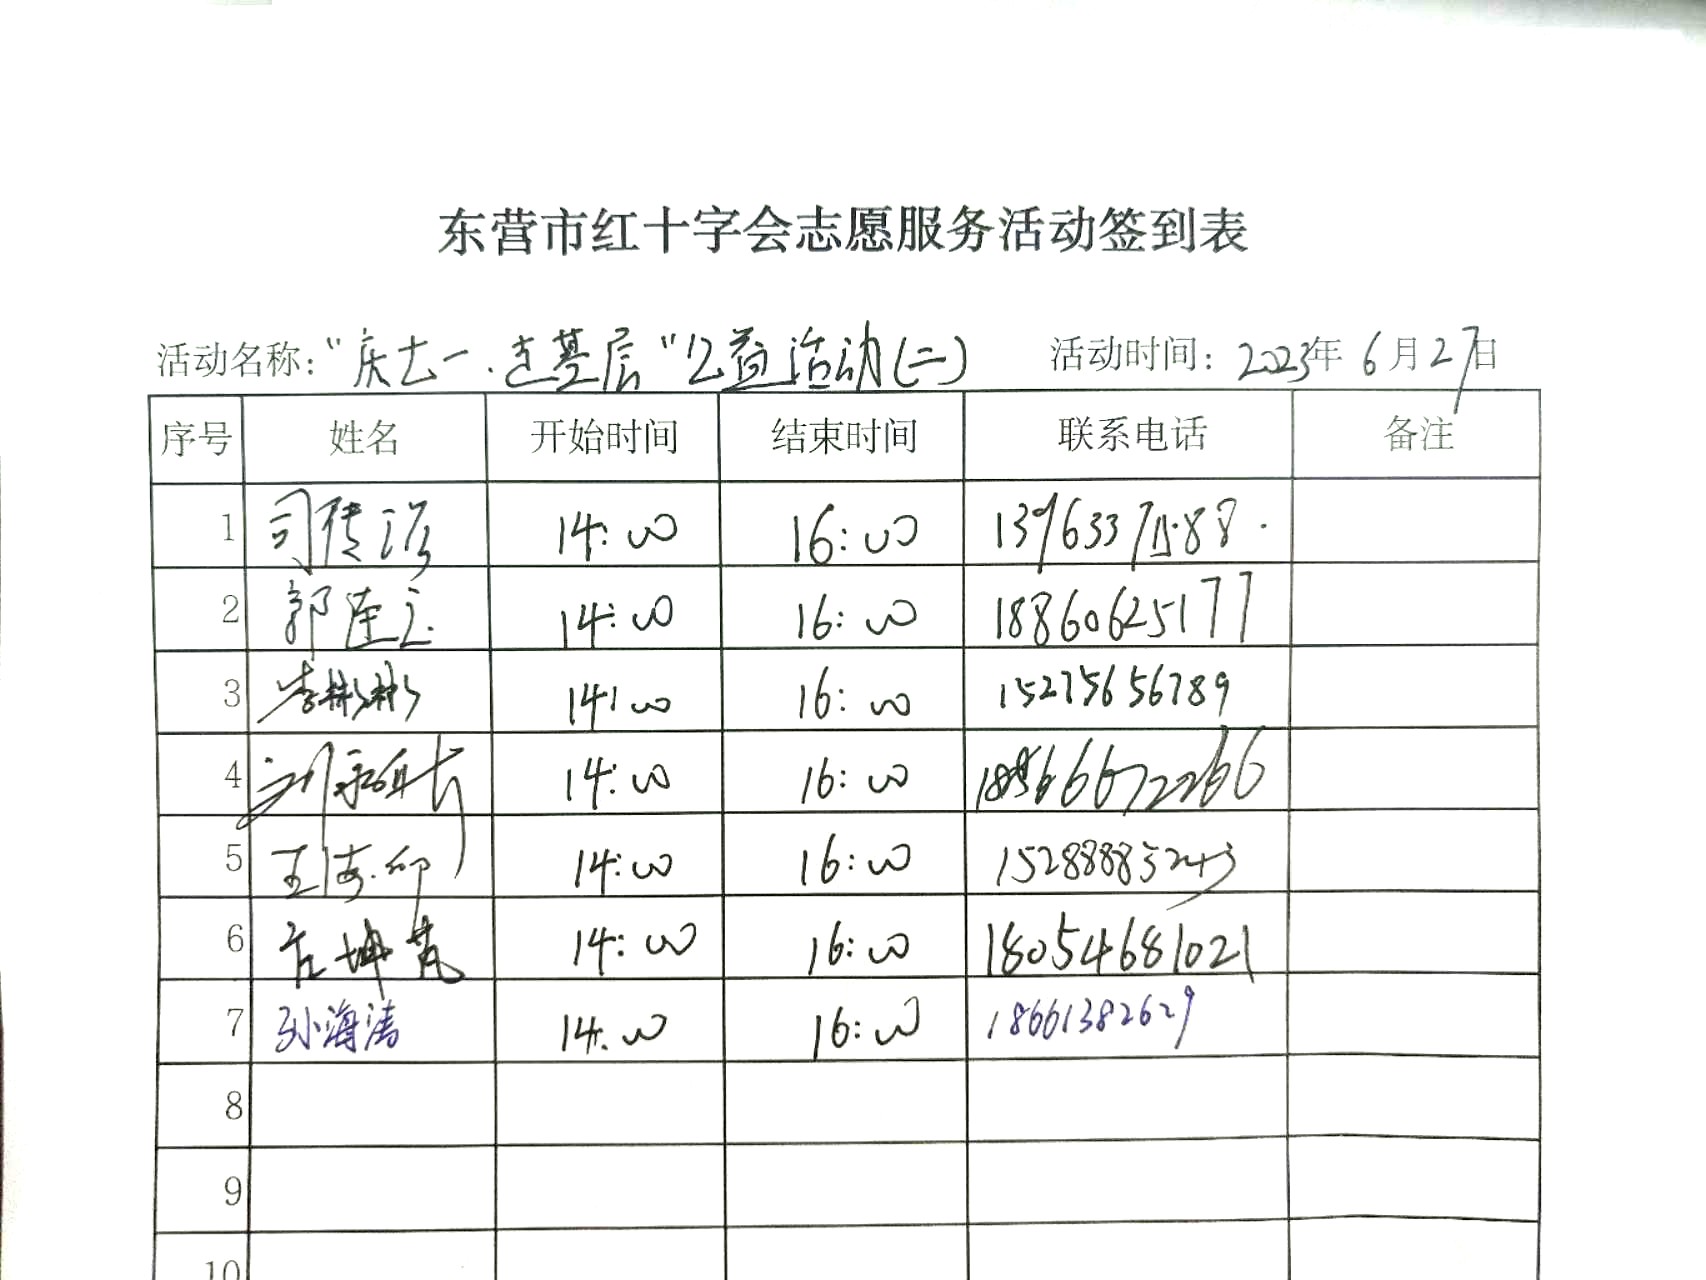 东营市红十字会志愿服务活动签到表
活动名称：“庆七一.走基层”公益活动(二) 活动时间：2023年6月27日
序号 姓名 开始时间 结束时间 联系电话 备注
1 司传 14:00 16:00
2 郭连 14:00 16:00 18860625177
3 李彬彬 14:00 16:00 15275656789
4 刘 14:00 16:00
5 王海 14:00 16:00
6 坤 14:00 16:00 18054681021
7 孙海涛 14:00 16:00 18661382629
8
9
10